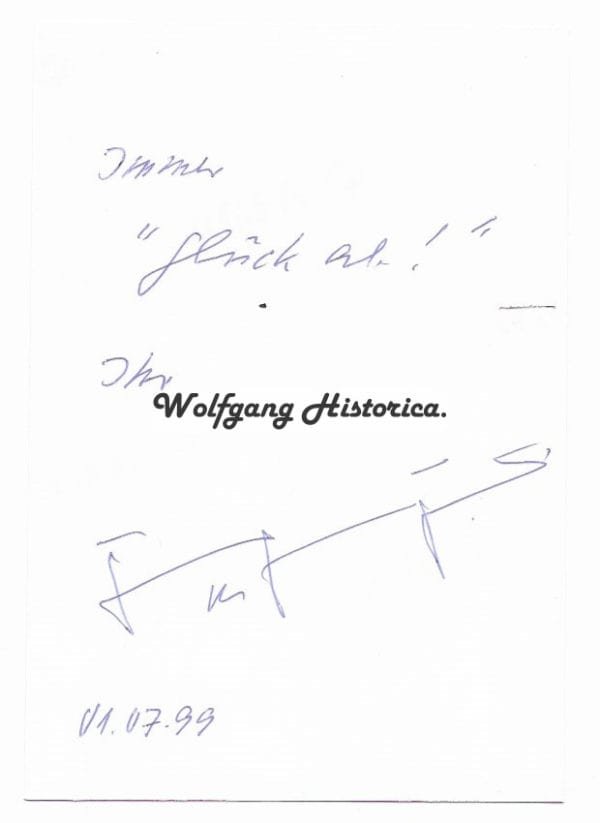 Immer
"Glück ab!"
Ihr
Wolfgang Historica.
01.07.99